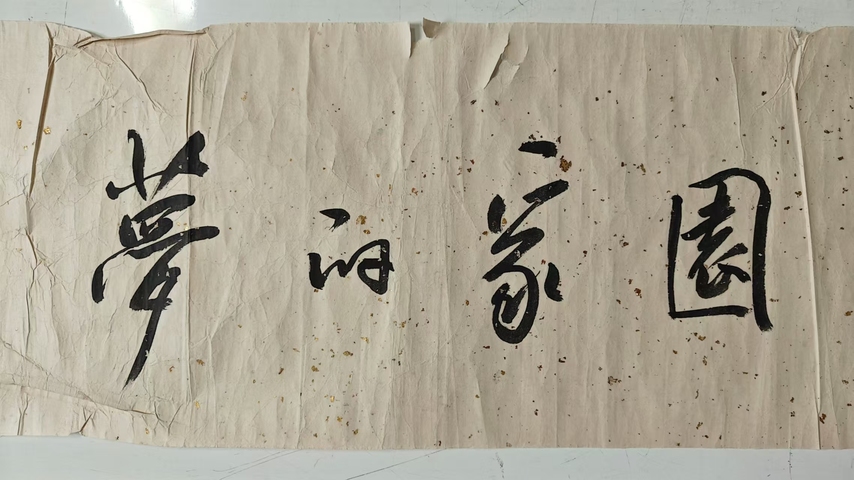 夢的家園